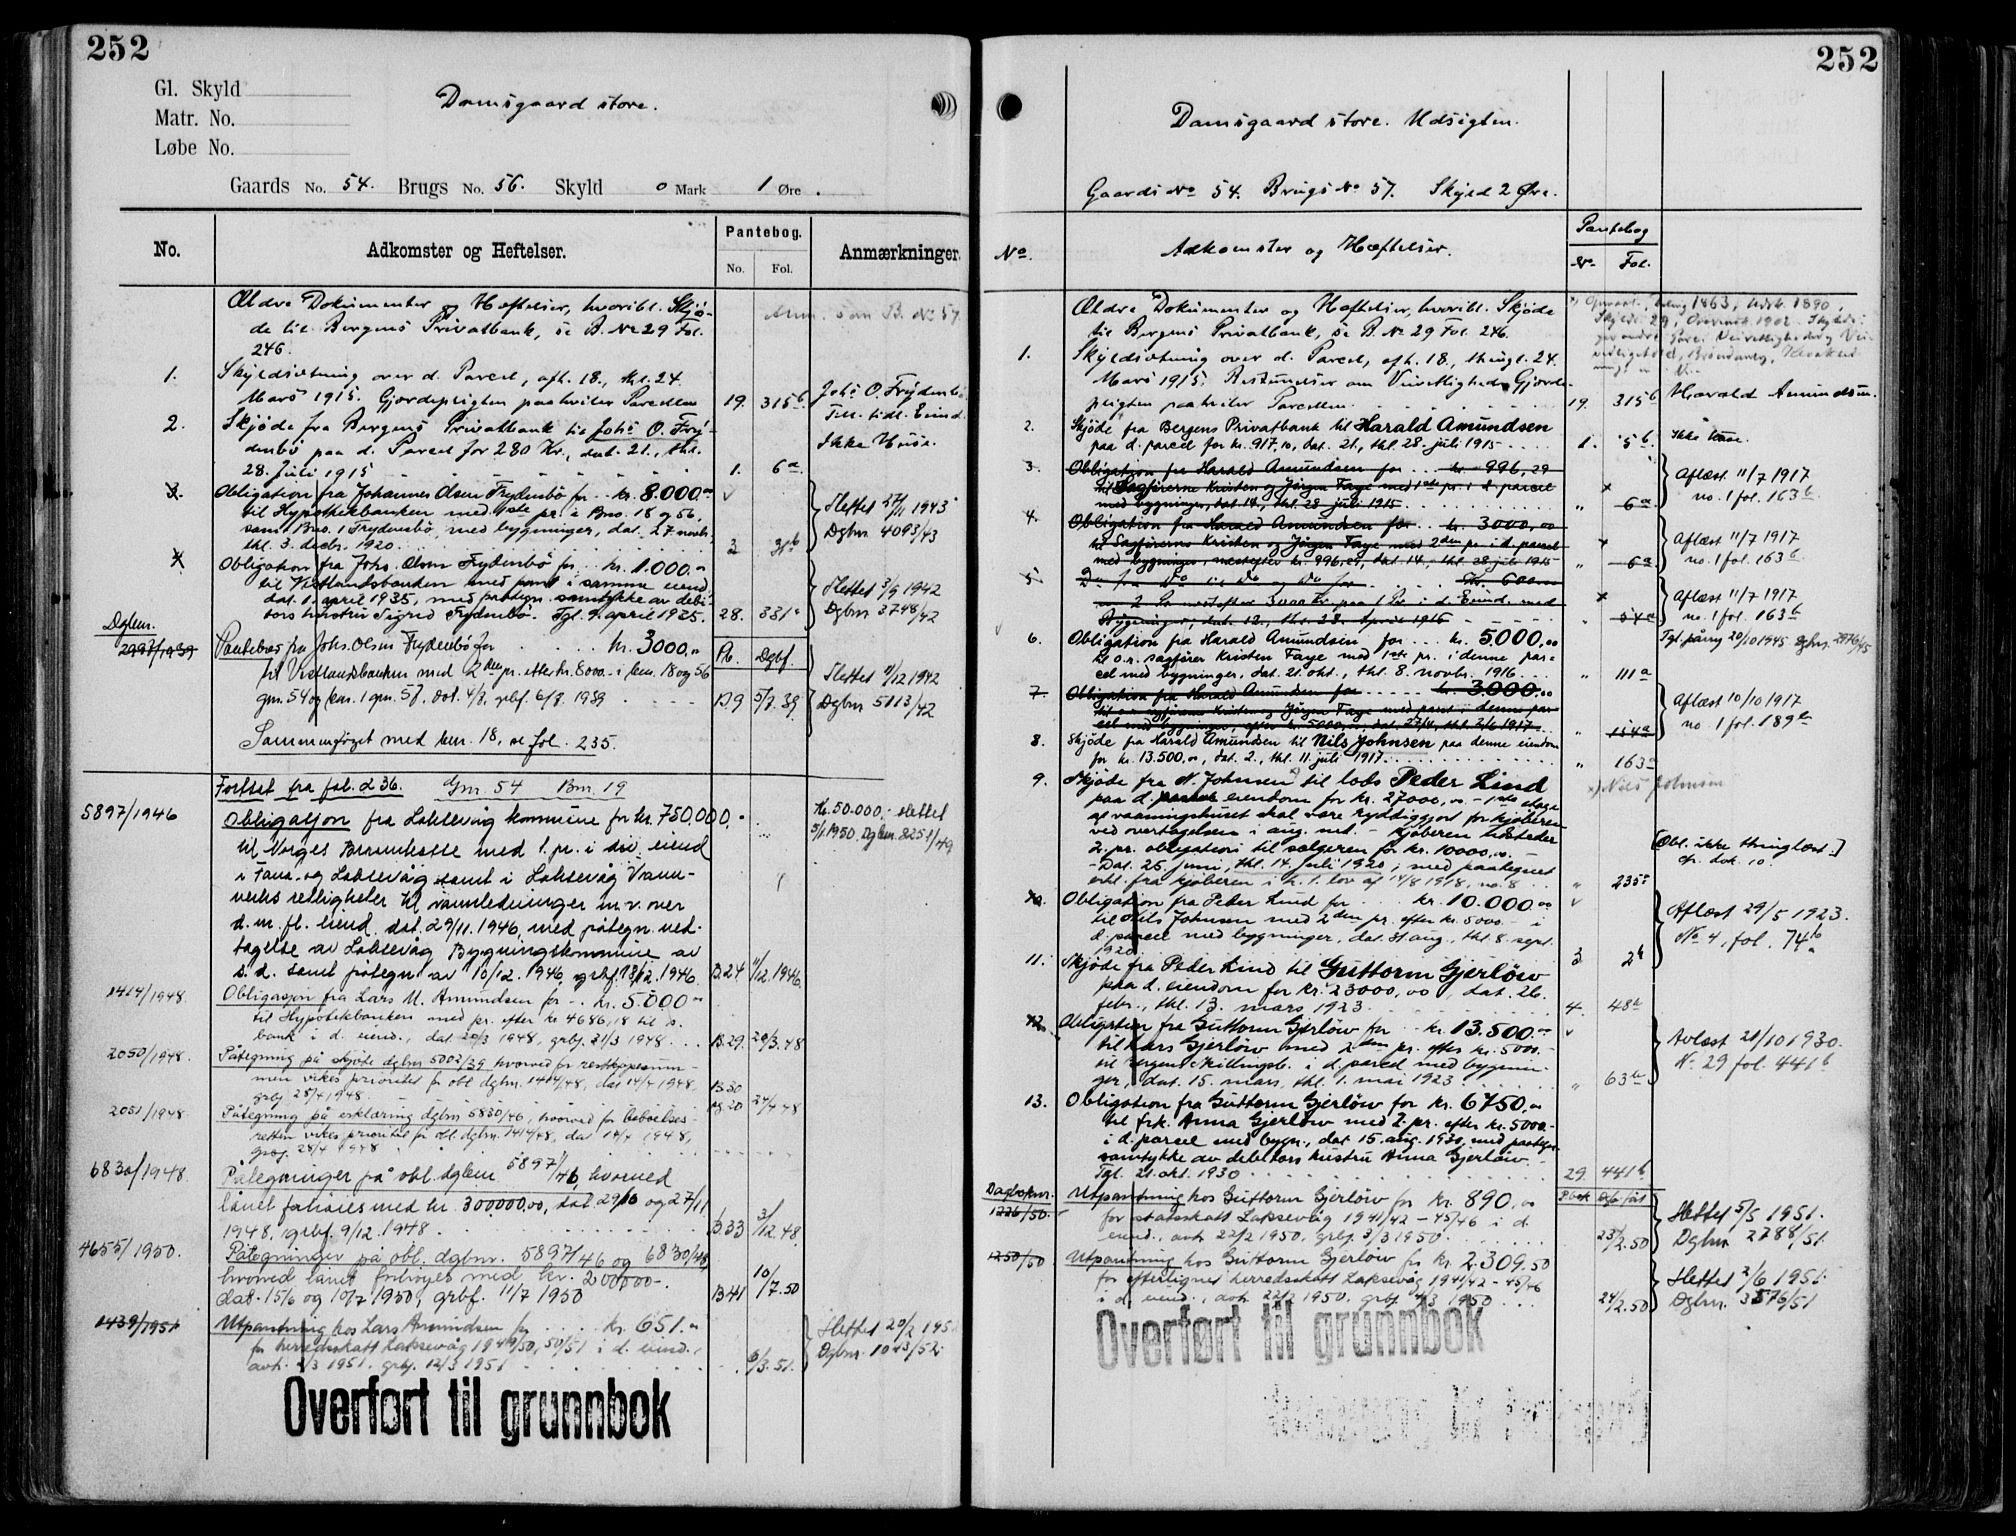 252
Gl. Skyld
Matr. No.
Løbe No.
Damsgaard store.
Gaards No. 54. Brugs No. 56. Skyld 0 Mark 1 Øre.
No.
Adkomster og Heftelser.
Pantebog.
No. Fol.
Anmærkninger.
Ældre Dokumenter og Hæftelser, hvoribl. Skjø-
de til Bergens Privatbank, se B. No 29 Fol.
246.
Anm. som B. No 57
1. Skyldsætning over d. Parcel, afh. 18., thl. 24.
Mars 1915. Gjerdepligten paahviler Parcellen 19. 315b
Johs O. Frydenbø
Till. tidl. Eiend.
Ikke Huse.
2. Skjøde fra Bergens Privatbank til Johs O. Fry-
denbø paa d. Parcel for 280 Kr., dat. 21., thl.
28. Juli 1915 1. 6a
3. Obligation fra Johannes Olsen Frydenbø for kr. 8.000,00
til Hypothekbanken med 1ste pr. i Bno. 18 og 56,
samt Bno. 1 Frydenbø, med bygninger, dat. 27. novbr.,
thl. 3. decbr. 1920. 2 31b
Slettet 27/11 1943
Dgbnr 4093/43
4. Obligation fra Johs. Olsen Frydenbø for kr. 1.000,00
til Vestlandsbanken med pant i samme eiend.
dat. 1. april 1935, med påtegn. samtykke av debi-
tors hustru Sigrid Frydenbø. Tgl. 9. april 1935. 28. 331a
Slettet 3/9 1942
Dgbnr 3748/42
Dgbnr.
2997/1939 Pantebrev fra Johs. Olsen Frydenbø for kr. 3000,00 Pb. Dgbf.
til Vestlandsbanken med 2den pr. efter kr. 8000.- i bnr. 18 og 56
gnr. 54 og bnr. 1 gnr. 57, dat. 4/7, grbf. 6/7 1939 B9 5/7.39
Slettet 11/12 1942
Dgbnr 5113/42
Sammenføiet med bnr. 18, se fol. 235.
Fortsat fra fol. 236. Gnr 54 Bnr. 19
5897/1946 Obligasjon fra Laksevåg kommune for kr. 750.000,00
til Norges Brannkasse med 1. pr. i div. eiend
i Fana og Laksevåg samt i Laksevåg Vann-
verks rettigheter til vannledninger m.v. over
d. m. fl. eiend. dat. 29/11. 1946, med påtegn. ved-
tagelse av Laksevåg Bygningskommune av
s. d. samt påtegn. av 10/12. 1946, grbf. 13/12. 1946. B24 11/12.1946.
Kr. 50.000,- slettet
5/1 1950. Dgbnr. 8251/49
1414/1948. Obligasjon fra Lars M. Amundsen for kr. 5.000,00
til Hypotekbanken med pr. efter kr 4686,18 til s.
bank i d. eiend., dat. 20/3 1948, grbf. 31/3 1948. B29. 20/3.48
2050/1948. Påtegning på skjøte dgbnr 5002/39 hvorved for restkjøpesum-
men vikes prioritet for obl. dgbnr. 1414/48, dat 14/4 1948,
grbf 28/4 1948. B30
2051/1948 Påtegning på erklæring dgbnr 5830/46, hvorved for beboelses-
retten vikes prioritet for obl. dgbnr. 1414/48, dat 14/4 1948,
grbf. 28/4 1948
24/4 48
6830/1948. Påtegninger på obl. dgbnr 5897/46, hvorved
lånet forhøies med kr. 300000,00, dat 29/10 og 27/11
1948, grbf. 9/12. 1948. B33 3/12.48.
4655/1950. Påtegninger på obl. dgbnr. 5897/46 og 6830/48,
hvorved lånet forhøyes med kr. 200000.-
dat. 15/6 og 10/7 1950, grbf. 11/7 1950 B41 10/7.50
1439/1951 Utpantning hos Lars Amundsen for kr. 651.00
for herredsskatt Laksevåg 1949/50, 50/51 i d. eiend.,
avh. 2/3 1951, grbf. 12/3 1951 9/3.51.
Slettet 20/2 195
Dgbnr. 1043/52.
Overført til grunnbok
252
Damsgaard store. Udsigten.
Gaards No 54. Brugs No 57. Skyld 2 Øre.
No.
Adkomster og Hæftelser.
Pantebog
No. Fol.
Ældre Dokumenter og Hæftelser, hvoribl. Skjøde
til Bergens Privatbank, se B. No 29 Fol. 246.
1. Skyldsætning over d. Parcel, afh. 18., thingl. 24.
Mars 1915. Bestemmelser om Veirettigheder. Gjerde-
pligten paahviler Parcellen. 19. 315b
Harald Amundsen.
2. Skjøde fra Bergens Privatbank til Harald Amundsen
paa d. parcel for kr. 917,10, dat. 21., thl. 28. juli 1915 1. 5b.
Ikke huse.
3. Obligation fra Harald Amundsen for kr. 996,29
til Sagførerne Kristen og Jørgen Faye med 1ste pr. i d. parcel
med bygninger, dat. 14., thl. 28. juli 1915. " 6a
Aflæst 11/7 1917
no. 1 fol. 163b
4. Obligation fra Harald Amundsen for kr. 3000,00
til Sagførerne Kristen og Jørgen Faye med 2den pr. i d. parcel
med bygninger, næstefter kr. 996,29, dat. 14., thl. 28. juli 1915 " 6a
Aflæst 11/7 1917
no. 1 fol. 163b.
5. Do fra Do til Do og Do for Kr. 600,00
m. 2. Pr. næstefter 3000 Kr. paa 1 Pr. i d. Eiend. med
Bygninger, dat. 12., thl. 28. April 1916 54a
Aflæst 11/7 1917
no. 1 fol. 163b
6. Obligation fra Harald Amundsen for kr. 5.000,00
til o.r. sagfører Kristen Faye med 1ste pr. i denne par-
cel med bygninger, dat. 21. okt., thl. 8. novbr. 1916. " 111a
7. Obligation fra Harald Amundsen for kr. 3.000,00
til o.r. sagførerne Kristen og Jørgen Faye med pant i denne par-
cel med bygninger, efter kr. 5000,00, dat. 27/4, thl. 2/6 1917. " 154a
Aflæst 10/10 1917
no. 1 fol. 189b
8. Skjøde fra Harald Amundsen til Nils Johnsen paa denne eiendom
for kr. 13.500,00, dat. 2., thl. 11. juli 1917. " 163a
x) Nils Johnsen
9. Skjøde fra N. Johnsen x) til lods Peder Lind
paa d. eiendom for kr. 27000,00. - 1ste etage
af vaaningshuset skal være ryddiggjort for kjøberen
ved overtagelsen i aug. md. - Kjøberen udsteder
2. pr. obligation til sælgeren for kr. 10000,00.
- Dat. 25. juni, thl. 14. juli 1920, med paategnet
erkl. fra kjøberen i h. t. lov af 14/8 1918, no. 8 " 235a
[Obl. ikke thinglæst.]
cfr. dok. 10.
10. Obligation fra Peder Lind for kr. 10.000,00
til Nils Johnsen med 2den pr. efter kr. 5000.- i
d. parcel med bygninger, dat. 31 aug., thl. 8. sept.
1920 3 2b
Aflæst 29/5 1923.
No 4, fol. 74b
11. Skjøde fra Peder Lind til Guttorm Gjerløw
paa d. eiendom for kr. 23000,00, dat. 26.
febr., thl. 13. mars 1923 4. 48a
12. Obligation fra Guttorm Gjerløw for kr. 13.500.-
til Lars Gjerløw med 2den pr. efter kr. 5000.-
til Bergens Skillingsb. i d. parcel med bygnin-
ger, dat. 15. mars, thl. 1. mai 1923 " 63a
Avlæst 21/10 1930.
N. 29 fol. 441b
13. Obligation fra Guttorm Gjerløw for kr. 6750,00
til frk. Anna Gjerløw med 2. pr. efter kr. 5000.-
i d. parcel med bygn., dat. 15. aug. 1930, med paategn.
samtykke av debitors hustru Anna Gjerløw.
Tgl. 21. okt. 1930 29. 441b
Dagboknr.
1226/50. Utpantning hos Guttorm Gjerløw for kr. 890,00
for statsskatt Laksevåg 1941/42 - 45/46 i d.
eiend., avh 22/2 1950, grbf. 3/3 1950. 23/2.50
Slettet 5/5 1951.
Dgbnr 2788/51.
1250/50 Utpantning hos Guttorm Gjerløw for kr. 2.309,50
for efterlignet herredsskatt Laksevåg 1941/42 - 45/46
i d. eiend., avh. 22/2 1950, grbf. 4/3 1950. 24/2.50
Slettet 2/6 1951.
Dgbnr. 3576/51
Overført til grunnbok